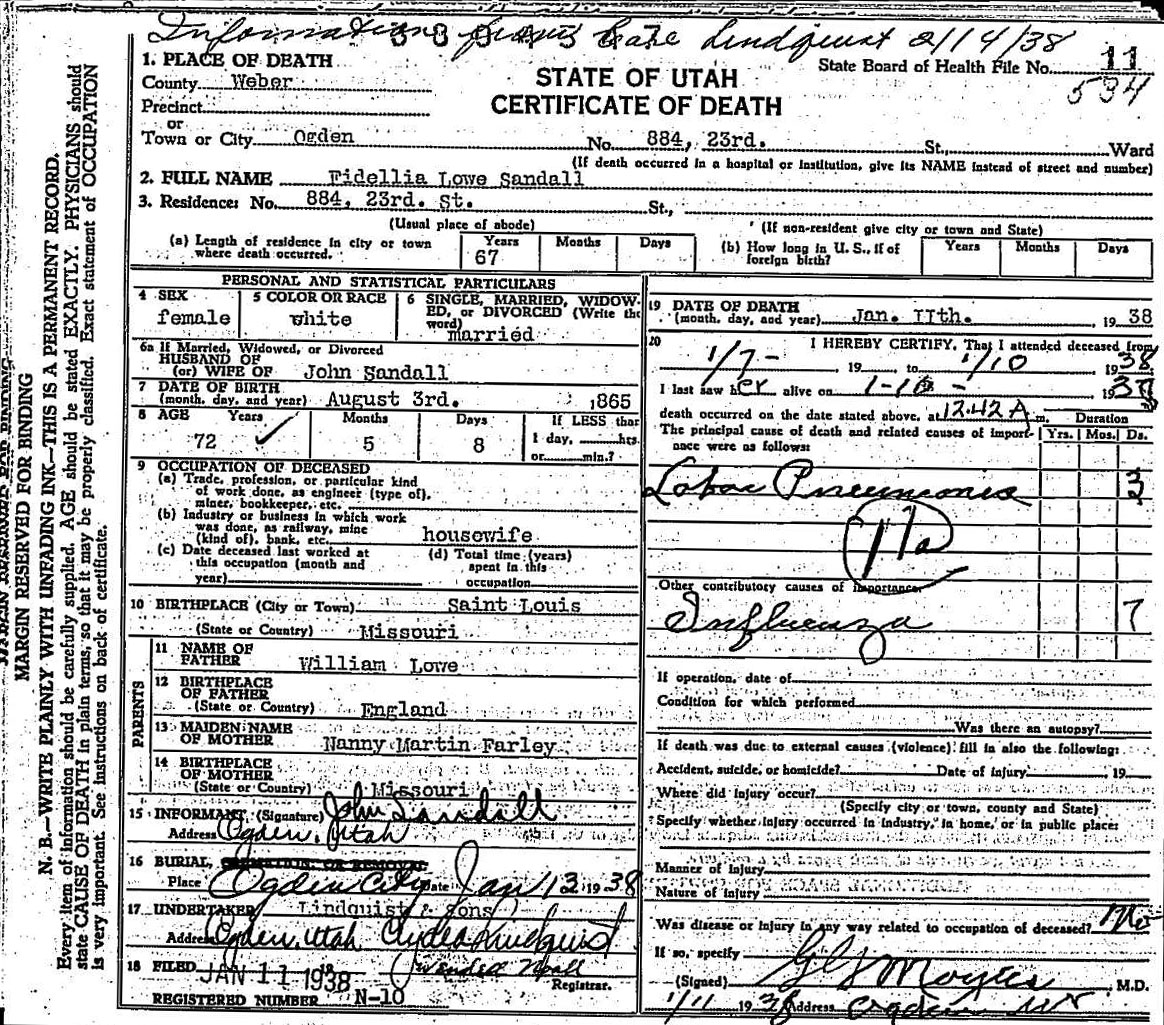 Information from Lindquist 2/14/38
1. PLACE OF DEATH
County Weber
Precinct
or
Town or City Ogden No. 884, 23rd. St., Ward
STATE OF UTAH
CERTIFICATE OF DEATH
State Board of Health File No. 11
534
(If death occurred in a hospital or institution, give its NAME instead of street and number)
2. FULL NAME Fidellia Lowe Sandall
3. Residence: No. 884, 23rd. St. St.,
(Usual place of abode) (If non-resident give city or town and State)
(a) Length of residence in city or town where death occurred. Years 67 Months Days
(b) How long in U. S., if of foreign birth? Years Months Days
PERSONAL AND STATISTICAL PARTICULARS
4 SEX female
5 COLOR OR RACE white
6 SINGLE, MARRIED, WIDOWED, or DIVORCED (Write the word) married
6a If Married, Widowed, or Divorced
HUSBAND OF
(or) WIFE OF John Sandall
7 DATE OF BIRTH
(month, day, and year) August 3rd. 1865
8 AGE Years 72 Months 5 Days 8 If LESS than
1 day, hrs.
or min.?
9 OCCUPATION OF DECEASED
(a) Trade, profession, or particular kind
of work done, as engineer (type of),
miner, bookkeeper, etc.
(b) Industry or business in which work
was done, as railway, mine
(kind of), bank, etc. housewife
(c) Date deceased last worked at
this occupation (month and
year)
(d) Total time (years)
spent in this
occupation
10 BIRTHPLACE (City or Town) Saint Louis
(State or Country) Missouri
PARENTS
11 NAME OF
FATHER William Lowe
12 BIRTHPLACE
OF FATHER
(State or Country) England
13 MAIDEN NAME
OF MOTHER Nanny Martin Farley
14 BIRTHPLACE
OF MOTHER
(State or Country) Missouri
15 INFORMANT (Signature) John Sandall
Address Ogden, Utah
16 BURIAL, CREMATION, OR REMOVAL
Place Ogden City Date Jan 13 1938
17 UNDERTAKER Lindquist & Sons
Address Ogden, Utah Clyde Lindquist
18 FILED JAN 11 1938 Wendell Noall
Registrar.
REGISTERED NUMBER N-10
19 DATE OF DEATH
(month, day, and year) Jan. IIth. 1938
20 I HEREBY CERTIFY, That I attended deceased from
1/7- 19 to 1/10 1938
I last saw her alive on 1-10- 1938
death occurred on the date stated above, at 12.42 A m. Duration
The principal cause of death and related causes of importance were as follows: Yrs. Mos. Ds.
Lobar Pneumonia 3
11a
Other contributory causes of importance
Influenza 7
If operation, date of
Condition for which performed
Was there an autopsy?
If death was due to external causes (violence) fill in also the following:
Accident, suicide, or homicide? Date of injury 19
Where did injury occur?
(Specify city or town, county and State)
Specify whether injury occurred in industry, in home, or in public place:
Manner of Injury
Nature of Injury
Was disease or injury in any way related to occupation of deceased? No
If so, specify
(Signed) Moyes M.D.
1/11 1938 Address Ogden Ut
MARGIN RESERVED FOR BINDING
N. B.—WRITE PLAINLY WITH UNFADING INK—THIS IS A PERMANENT RECORD.
Every item of information should be carefully supplied. AGE should be stated EXACTLY. PHYSICIANS should
state CAUSE OF DEATH in plain terms, so that it may be properly classified. Exact statement of OCCUPATION
is very important. See instructions on back of certificate.